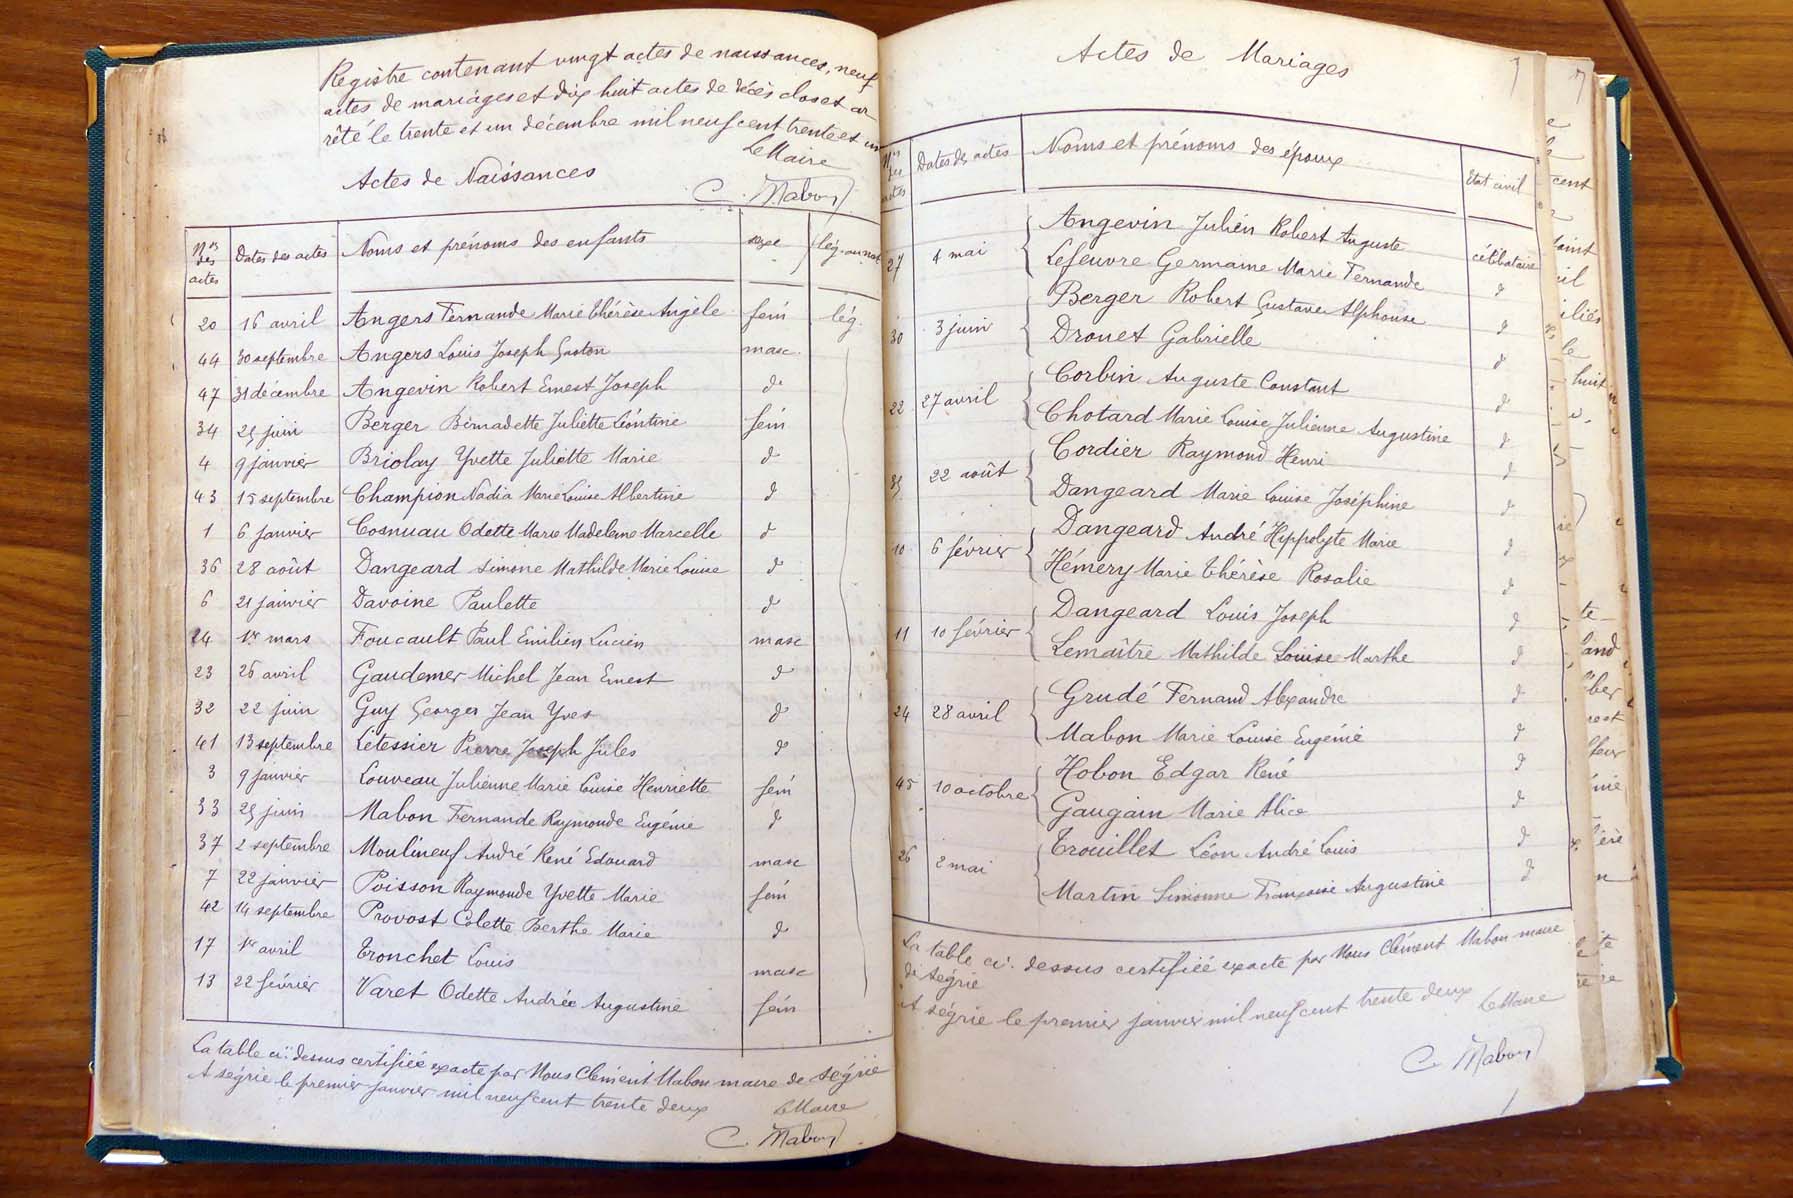 Registre contenant vingt actes de naissances, neuf
actes de mariages et dix huit actes de décès clos et ar
rêté le trente et un décembre mil neuf cent trente et un
Le Maire
C. Mabon
Actes de Naissances
Nos des actes Dates des actes Noms et prénoms des enfants sexe lég. ou nat
20 16 avril Angers Fernande Marie Thérèse Angèle fém lég.
44 30 septembre Angers Louis Joseph Gaston masc.
47 31 décembre Angevin Robert Ernest Joseph d°
34 25 juin Berger Bernadette Juliette Léontine fém
4 9 janvier Briolay Yvette Juliette Marie d
43 15 septembre Champion Nadia Marie Louise Albertine d
1 6 janvier Cosnuau Odette Marie Madeleine Marcelle d
36 28 août Dangeard Simone Mathilde Marie Louise d
6 21 janvier Davoine Paulette d
14 1er mars Foucault Paul Emilien Lucien masc
23 26 avril Gaudemer Michel Jean Ernest d
32 22 juin Guy Georges Jean Yves d
41 13 septembre Létessier Pierre Joseph Jules d
3 9 janvier Louveau Julienne Marie Louise Henriette fém
33 25 juin Mabon Fernande Raymonde Eugénie d
37 2 septembre Moulineuf André René Edouard masc
7 22 janvier Poisson Raymonde Yvette Marie fém
42 14 septembre Provost Colette Berthe Marie d
17 1er avril Tronchet Louis masc
13 22 février Varet Odette Andrée Augustine fém
La table ci-dessus certifiée exacte par Nous Clément Mabon maire de Ségrie
A ségrie le premier janvier mil neuf cent trente deux
Le Maire
C. Mabon
Actes de Mariages
7
Nos des actes Dates des actes Noms et prénoms des époux Etat civil
27 4 mai Angevin Julien Robert Auguste célibataire
Lefeuvre Germaine Marie Fernande d
30 3 juin Berger Robert Gustave Alphonse d
Drouet Gabrielle d
22 27 avril Corbin Auguste Constant d
Chotard Marie Louise Julienne Augustine d
35 22 août Cordier Raymond Henri d
Dangeard Marie Louise Joséphine d
10 6 février Dangeard André Hippolyte Marie d
Hémery Marie Thérèse Rosalie d
11 10 février Dangeard Louis Joseph d
Lemaître Mathilde Louise Marthe d
24 28 avril Grudé Fernand Alexandre d
Mabon Marie Louise Eugénie d
45 10 octobre Hobon Edgar René d
Gaugain Marie Alice d
26 2 mai Trouillet Léon André Louis d
Martin Simonne Françoise Augustine d
La table ci-dessus certifiée exacte par Nous Clément Mabon maire
de Ségrie
A ségrie le premier janvier mil neuf cent trente deux
Le Maire
C. Mabon